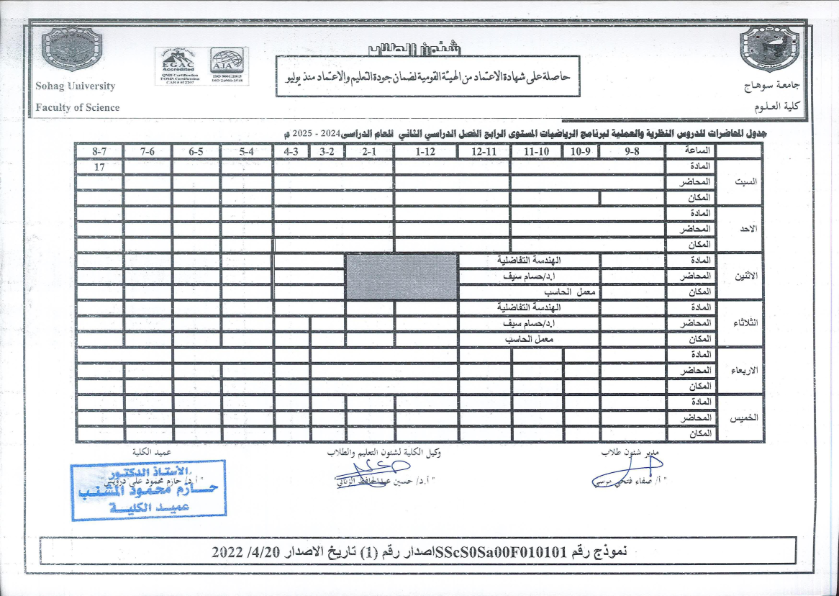 شئون الطلاب
EGAC
Accredited
AJA
Sohag University
Faculty of Science
حاصلة على شهادة الاعتماد من الهيئة القومية لضمان جودة التعليم والاعتماد منذ يوليو
جامعة سوهاج
كلية العلوم
جدول المحاضرات للدروس النظرية والعملية لبرنامج الرياضيات المستوى الرابع الفصل الدراسي الثاني للعام الدراسى 2024 - 2025 م
الساعة 9-8 10-9 11-10 12-11 1-12 2-1 3-2 4-3 5-4 6-5 7-6 8-7
السبت المادة 17
المحاضر
المكان
الاحد المادة
المحاضر
المكان
الاثنين المادة الهندسة التفاضلية
المحاضر ا.د/حسام سيف
المكان معمل الحاسب
الثلاثاء المادة الهندسة التفاضلية
المحاضر ا.د/حسام سيف
المكان معمل الحاسب
الاربعاء المادة
المحاضر
المكان
الخميس المادة
المحاضر
المكان
مدير شئون طلاب وكيل الكلية لشئون التعليم والطلاب عميد الكلية
" أ/ صفاء فتحى موسى " أ.د/ حسين عبدالحافظ
الأستاذ الدكتور
حازم محمود المشنب
عميد الكلية
نموذج رقم SScS0Sa00F010101اصدار رقم (1) تاريخ الاصدار 2022 /4/20